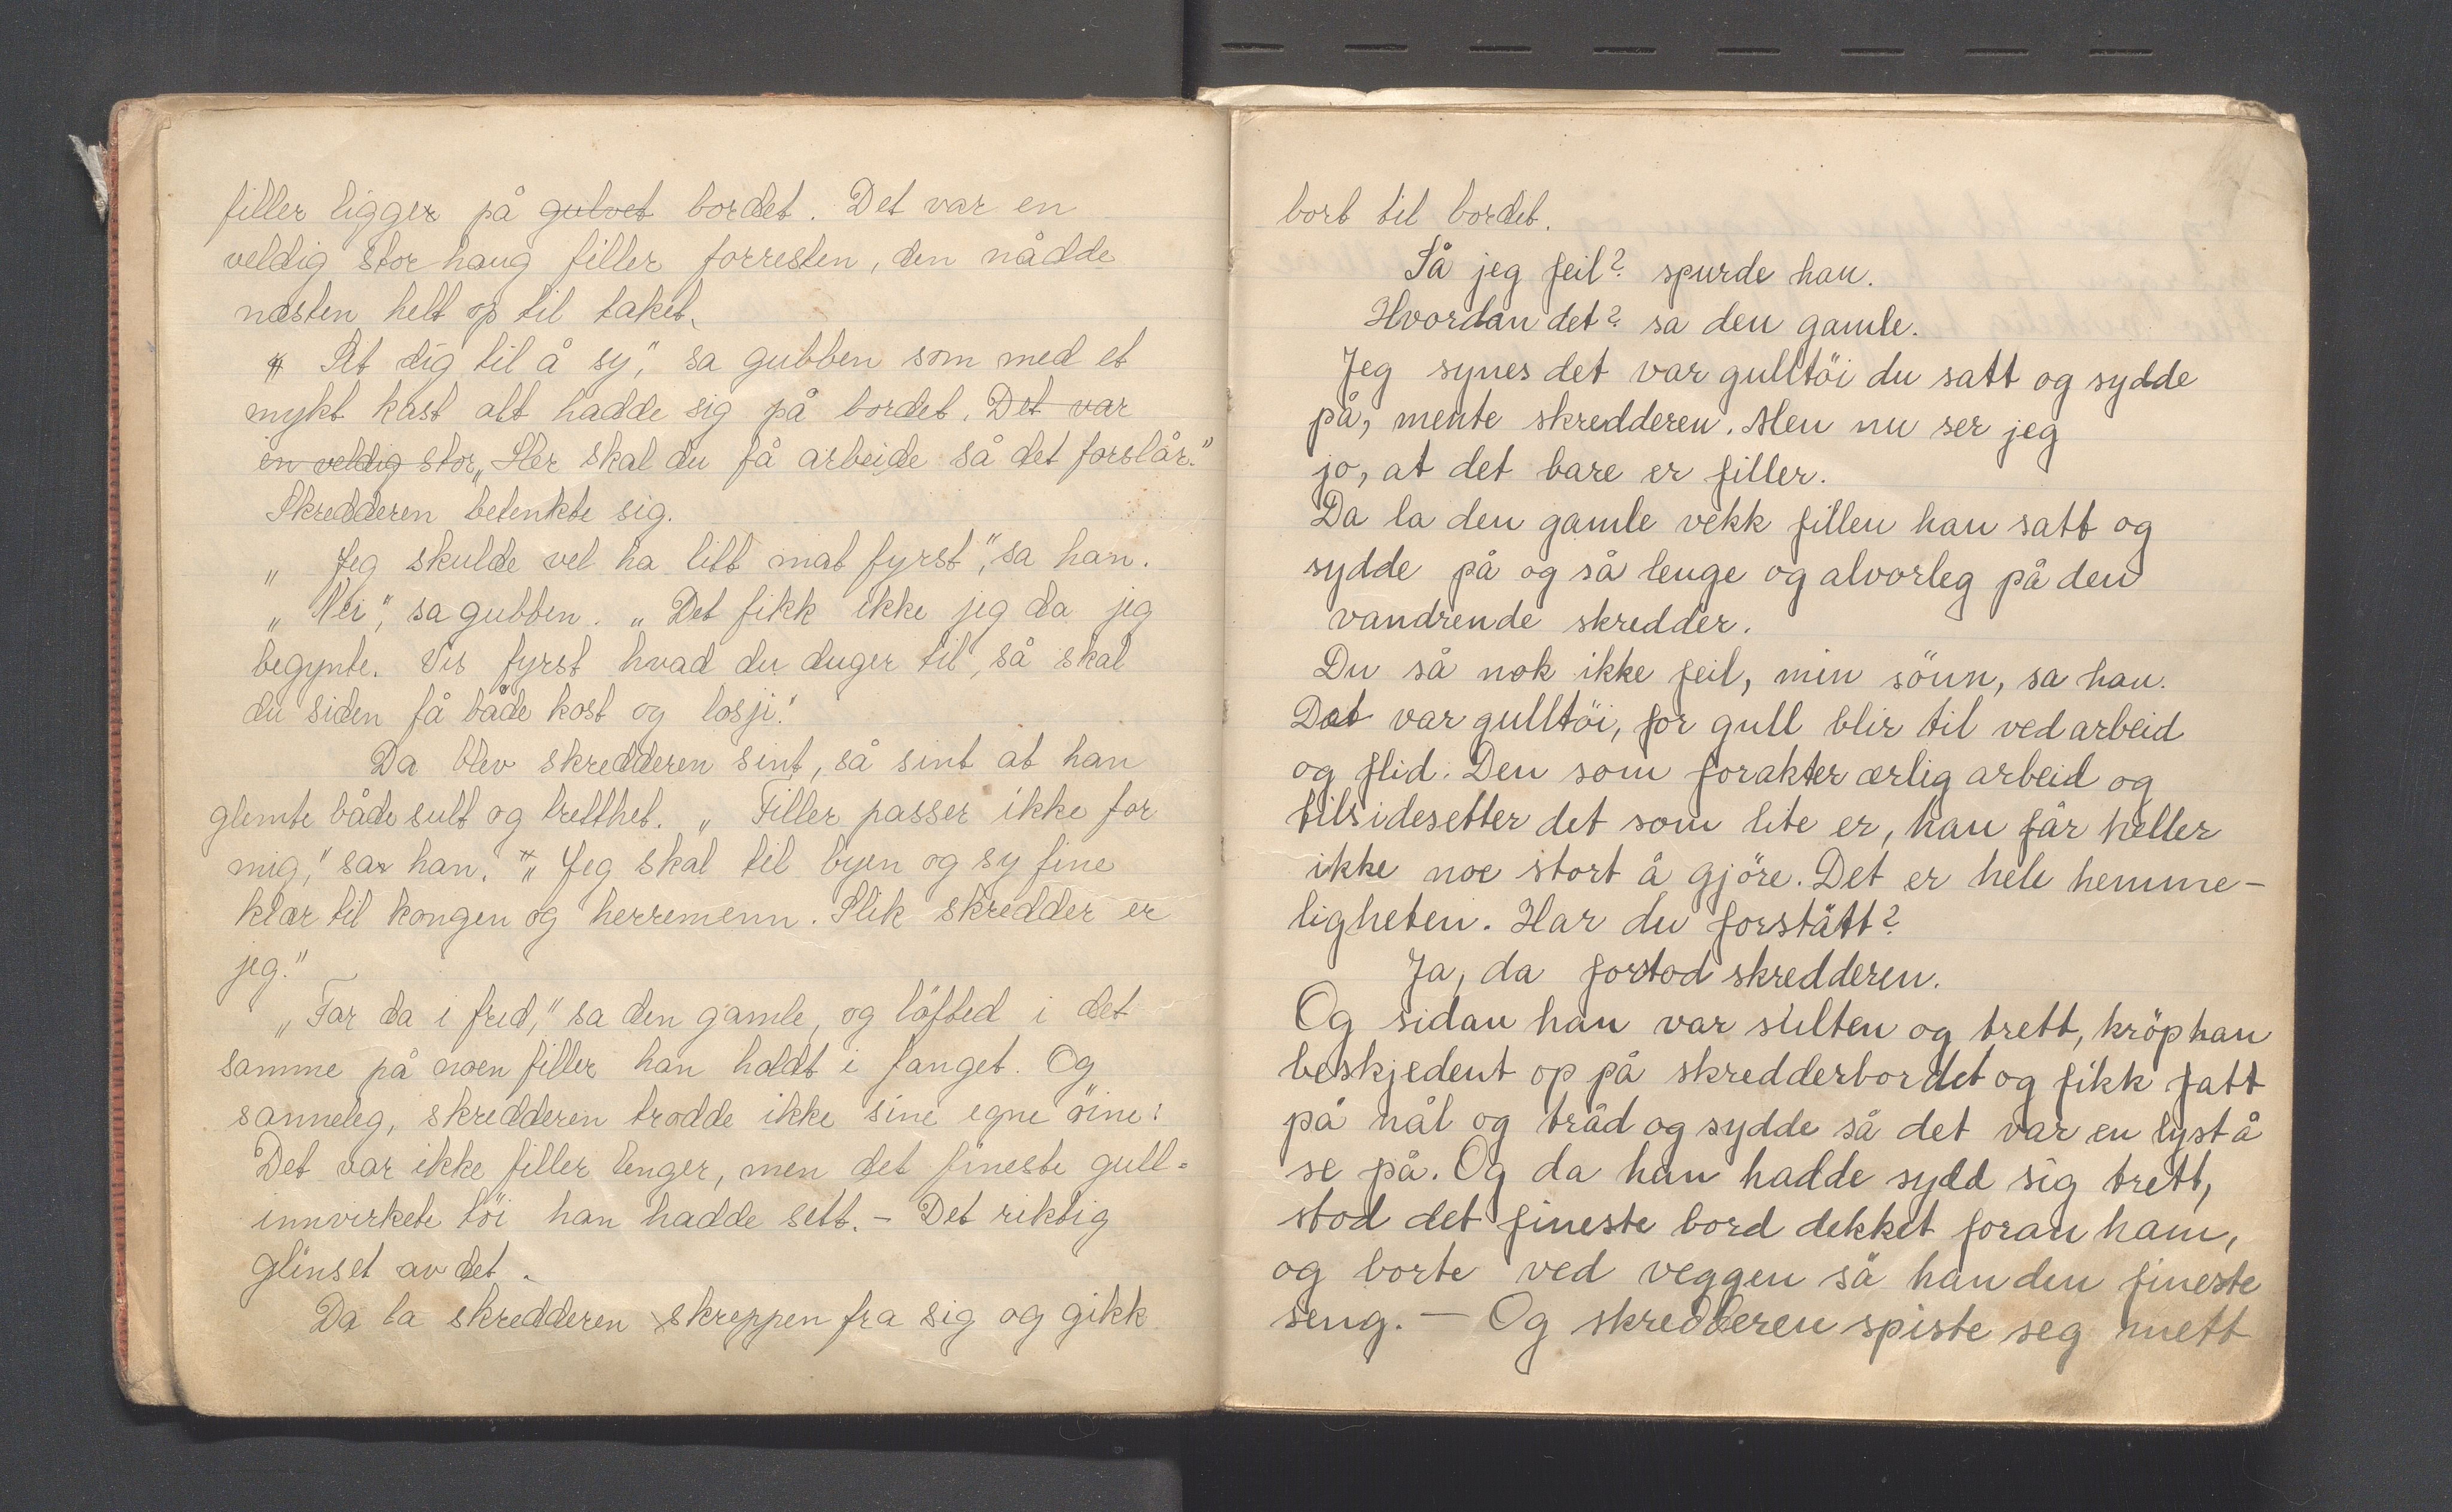 filler ligger på gulvet bordet. Det var en
veldig stor haug filler forresten, den nådde
næsten helt op til taket.
„Set dig til å sy," sa gubben som med et
mykt kast alt hadde sig på bordet. Det var
en veldig stor „Her skal du få arbeide så det forslår."
Skredderen betenkte sig.
„Jeg skulde vel ha litt mat fyrst," sa han.
„Nei," sa gubben. „Det fikk ikke jeg da jeg
begynte. Vis fyrst hvad du duger til, så skal
du siden få både kost og losji."
Da blev skredderen sint, så sint at han
glemte både sult og tretthet. „Filler passer ikke for
mig," sa han. „Jeg skal til byen og sy fine
klær til kongen og herremenn. Slik skredder er
jeg."
„Far da i fred," sa den gamle, og löfted i det
samme på noen filler han holdt i fanget. Og
sanneleg, skredderen trodde ikke sine egne öine:
Det var ikke filler lenger, men det fineste gull-
innvirkete töi han hadde sett. – Det riktig
glinset av det.
Da la skredderen skreppen fra sig og gikk
bort til bordet.
Så jeg feil? spurde han.
Hvordan det? sa den gamle.
Jeg synes det var gulltöi du satt og sydde
på, mente skredderen. Men nu ser jeg
jo, at det bare er filler.
Da la den gamle vekk fillen han satt og
sydde på og så lenge og alvorleg på den
vandrende skredder.
Du så nok ikke feil, min sönn, sa han.
Det var gulltöi, for gull blir til ved arbeid
og flid. Den som forakter ærlig arbeid og
tilsidesetter det som lite er, han får heller
ikke noe stort å gjöre. Det er hele hemme-
ligheten. Har du forstått?
Ja, da forstod skredderen.
Og sidan han var sulten og trett, kröp han
beskjedent op på skredderbordet og fikk fatt
på nål og tråd og sydde så det var en lyst å
se på. Og da han hadde sydd sig trett,
stod det fineste bord dekket foran ham,
og borte ved veggen så han den fineste
seng. – Og skredderen spiste seg mett